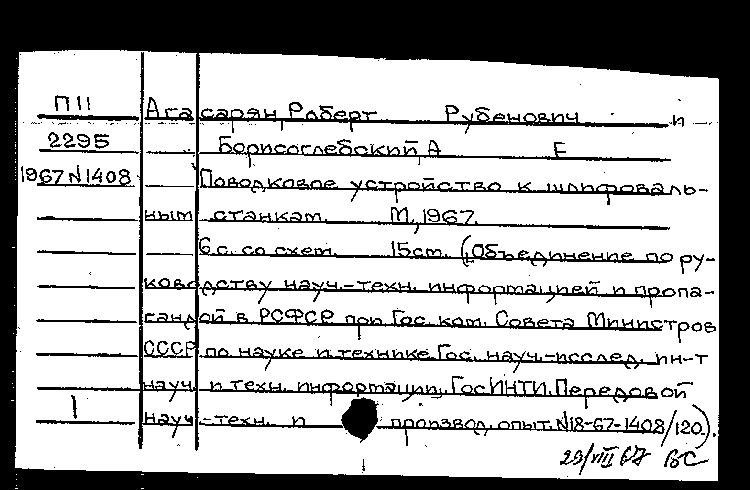 П11 Агасарян, Роберт Рубенович и
2295 Борисоглебский, А Е
1967 N1408 Поводковое устройство к шлифоваль-
ным станкам. М., 1967.
6 с. со схем. 15 см. (Объединение по ру-
ководству науч.-техн. информацией и пропа-
гандой в РСФСР при Гос. ком. Совета Министров
СССР по науке и технике. Гос. науч.-исслед. ин-т
науч. и техн. информации. ГосИНТИ. Передовой
1 науч.-техн. и производ. опыт. N18-67-1408/120).
29/VIII 67 ВС